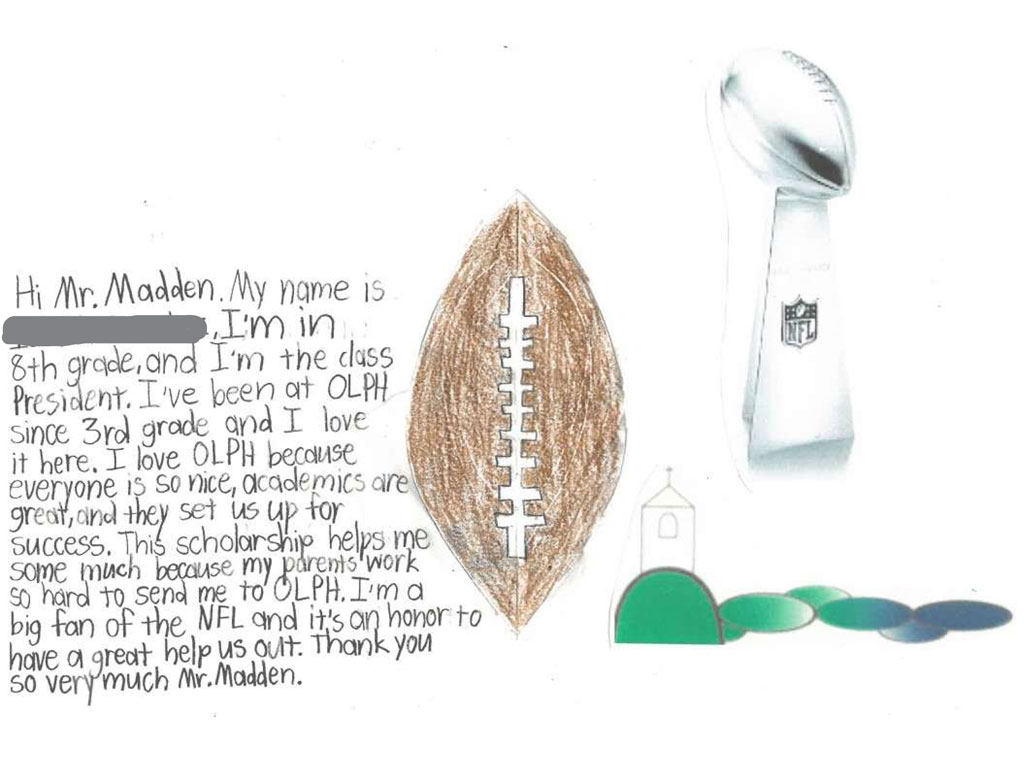 Hi Mr. Madden. My name is
, I'm in
8th grade, and I'm the class
President. I've been at OLPH
since 3rd grade and I love
it here. I love OLPH because
everyone is so nice, academics are
great, and they set us up for
success. This scholarship helps me
some much because my parents work
so hard to send me to OLPH. I'm a
big fan of the NFL and it's an honor to
have a great help us out. Thank you
so very much Mr. Madden.
NFL